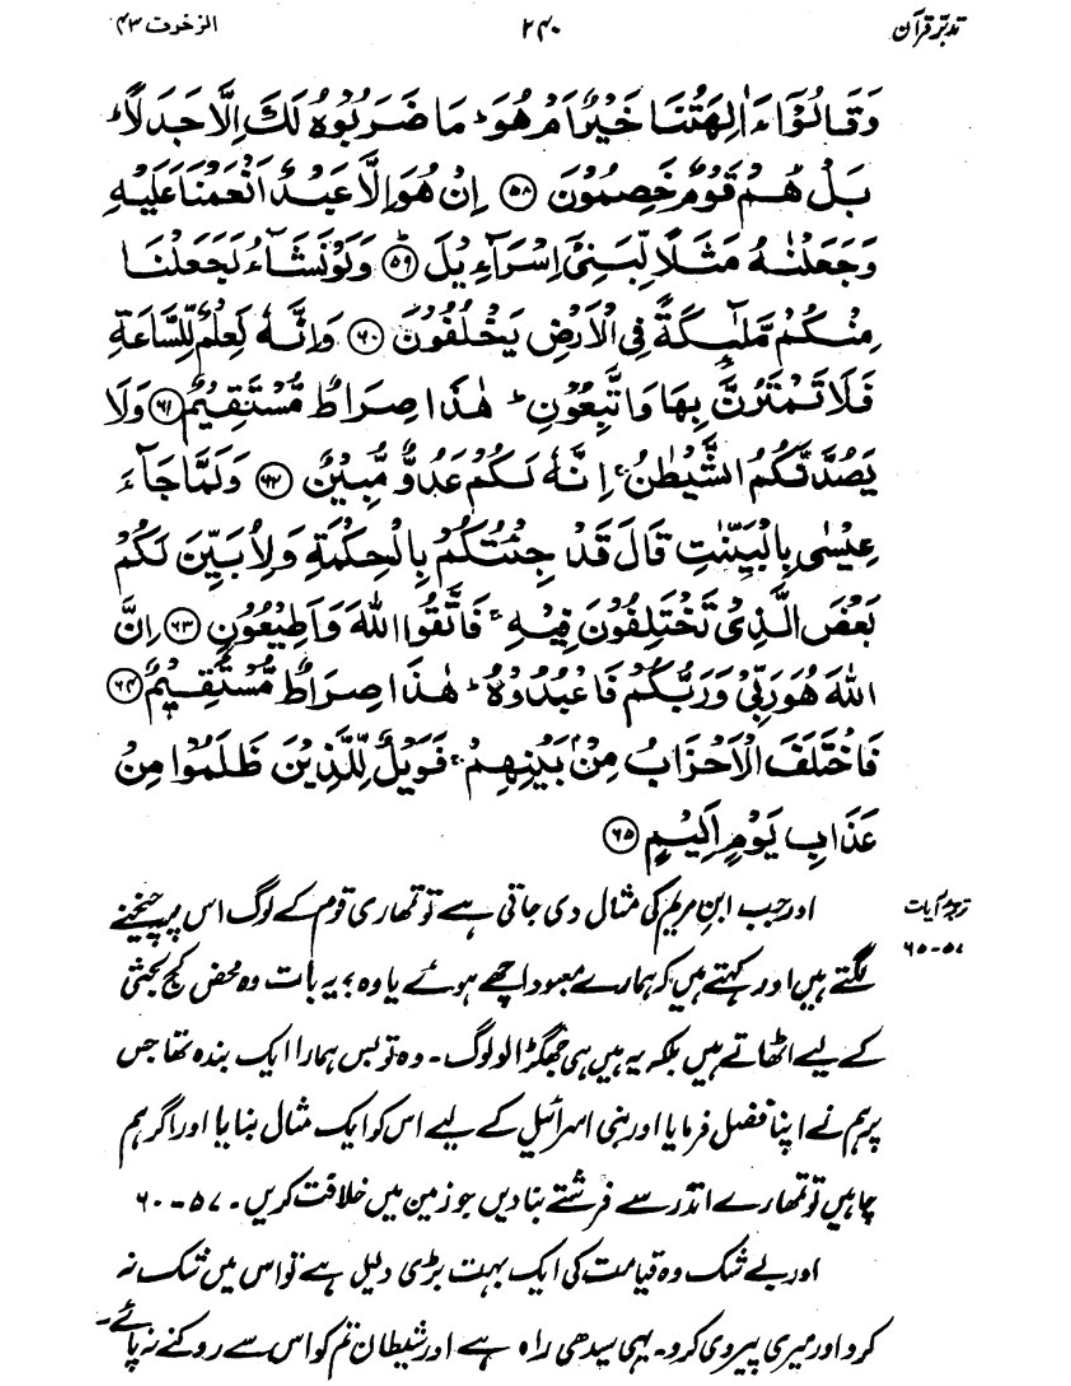 تدبّرِ قرآن ۲۴۰ الزخرف ۴۳
وَقَالُوْٓا ءَاٰلِهَتُنَا خَيْرٌ اَمْ هُوَ ؕ مَا ضَرَبُوْهُ لَكَ اِلَّا جَدَلًا ؕ
بَلْ هُمْ قَوْمٌ خَصِمُوْنَ ﴿۵۸﴾ اِنْ هُوَ اِلَّا عَبْدٌ اَنْعَمْنَا عَلَيْهِ
وَجَعَلْنٰهُ مَثَلًا لِّبَنِيْٓ اِسْرَآءِيْلَ ﴿۵۹﴾ وَلَوْ نَشَآءُ لَجَعَلْنَا
مِنْكُمْ مَّلٰٓئِكَةً فِى الْاَرْضِ يَخْلُفُوْنَ ﴿۶۰﴾ وَاِنَّهٗ لَعِلْمٌ لِّلسَّاعَةِ
فَلَا تَمْتَرُنَّ بِهَا وَاتَّبِعُوْنِ ؕ هٰذَا صِرَاطٌ مُّسْتَقِيْمٌ ﴿۶۱﴾ وَلَا
يَصُدَّنَّكُمُ الشَّيْطٰنُ ۚ اِنَّهٗ لَكُمْ عَدُوٌّ مُّبِيْنٌ ﴿۶۲﴾ وَلَمَّا جَآءَ
عِيْسٰى بِالْبَيِّنٰتِ قَالَ قَدْ جِئْتُكُمْ بِالْحِكْمَةِ وَلِاُبَيِّنَ لَكُمْ
بَعْضَ الَّذِىْ تَخْتَلِفُوْنَ فِيْهِ ۚ فَاتَّقُوا اللّٰهَ وَاَطِيْعُوْنِ ﴿۶۳﴾ اِنَّ
اللّٰهَ هُوَ رَبِّىْ وَرَبُّكُمْ فَاعْبُدُوْهُ ؕ هٰذَا صِرَاطٌ مُّسْتَقِيْمٌ ﴿۶۴﴾
فَاخْتَلَفَ الْاَحْزَابُ مِنْۢ بَيْنِهِمْ ۚ فَوَيْلٌ لِّلَّذِيْنَ ظَلَمُوْا مِنْ
عَذَابِ يَوْمٍ اَلِيْمٍ ﴿۶۵﴾
ترجمۂ آیات
۵۷-۶۵
اور جب ابنِ مریم کی مثال دی جاتی ہے تو تمھاری قوم کے لوگ اس پر چیخنے
لگتے ہیں اور کہتے ہیں کہ ہمارے معبود اچھے ہوئے یا وہ؛ یہ بات وہ محض کج بحثی
کے لیے اٹھاتے ہیں بلکہ یہ ہیں ہی جھگڑالو لوگ۔ وہ تو بس ہمارا ایک بندہ تھا جس
پر ہم نے اپنا فضل فرمایا اور بنی اسرائیل کے لیے اس کو ایک مثال بنایا اور اگر ہم
چاہیں تو تمھارے اندر سے فرشتے بنا دیں جو زمین میں خلافت کریں۔ ۵۷-۶۰
اور بے شک وہ قیامت کی ایک بہت بڑی دلیل ہے تو اس میں شک نہ
کرو اور میری پیروی کرو۔ یہی سیدھی راہ ہے اور شیطان تم کو اس سے روکنے نہ پائے۔